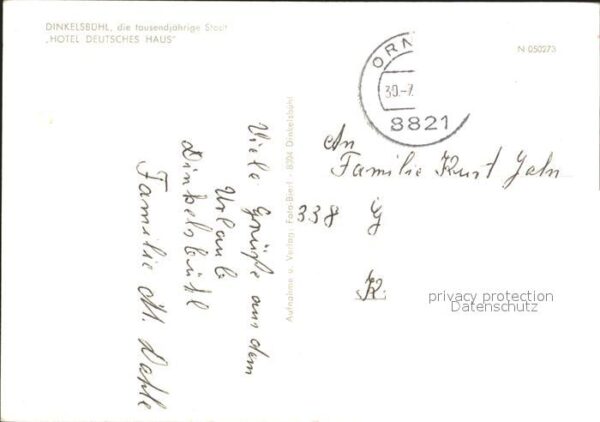 DINKELSBÜHL, die tausendjährige Stadt
„HOTEL DEUTSCHES HAUS"
N 050273
ORN
30.-7.
8821
Viele Grüße aus dem
Urlaub
Dinkelsbühl
Familie M. Dahle
Aufnahme u. Verlag: Foto-Bierl - 8804 Dinkelsbühl
An
Familie Kurt Jahn
338 G
K.
privacy protection
Datenschutz